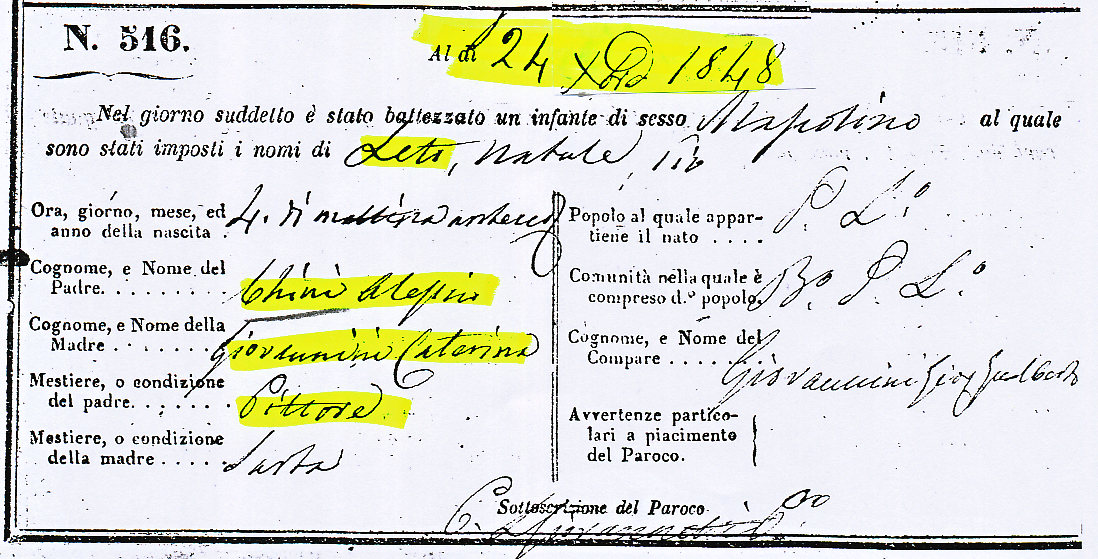 N. 516.
Al dì 24 Xbre 1848
Nel giorno suddetto è stato battezzato un infante di sesso Mascolino al quale
sono stati imposti i nomi di Leto, Natale,
Ora, giorno, mese, ed
anno della nascita . 4. di mattina
Cognome, e Nome del
Padre. . . . . . . . Chini Alessio
Cognome, e Nome della
Madre . . . . . . . Giovannini Caterina
Mestiere, o condizione
del padre. . . . . . Pittore
Mestiere, o condizione
della madre . . . . . Sarta
Popolo al quale appar-
tiene il nato . . . . P. L.º
Comunità nella quale è
compreso d.º popolo. Bº. P. L.º
Cognome, e Nome del
Compare . . . . . . Giovannini Gualberto
Avvertenze partico-
lari a piacimento
del Paroco.
Sottoscrizione del Paroco